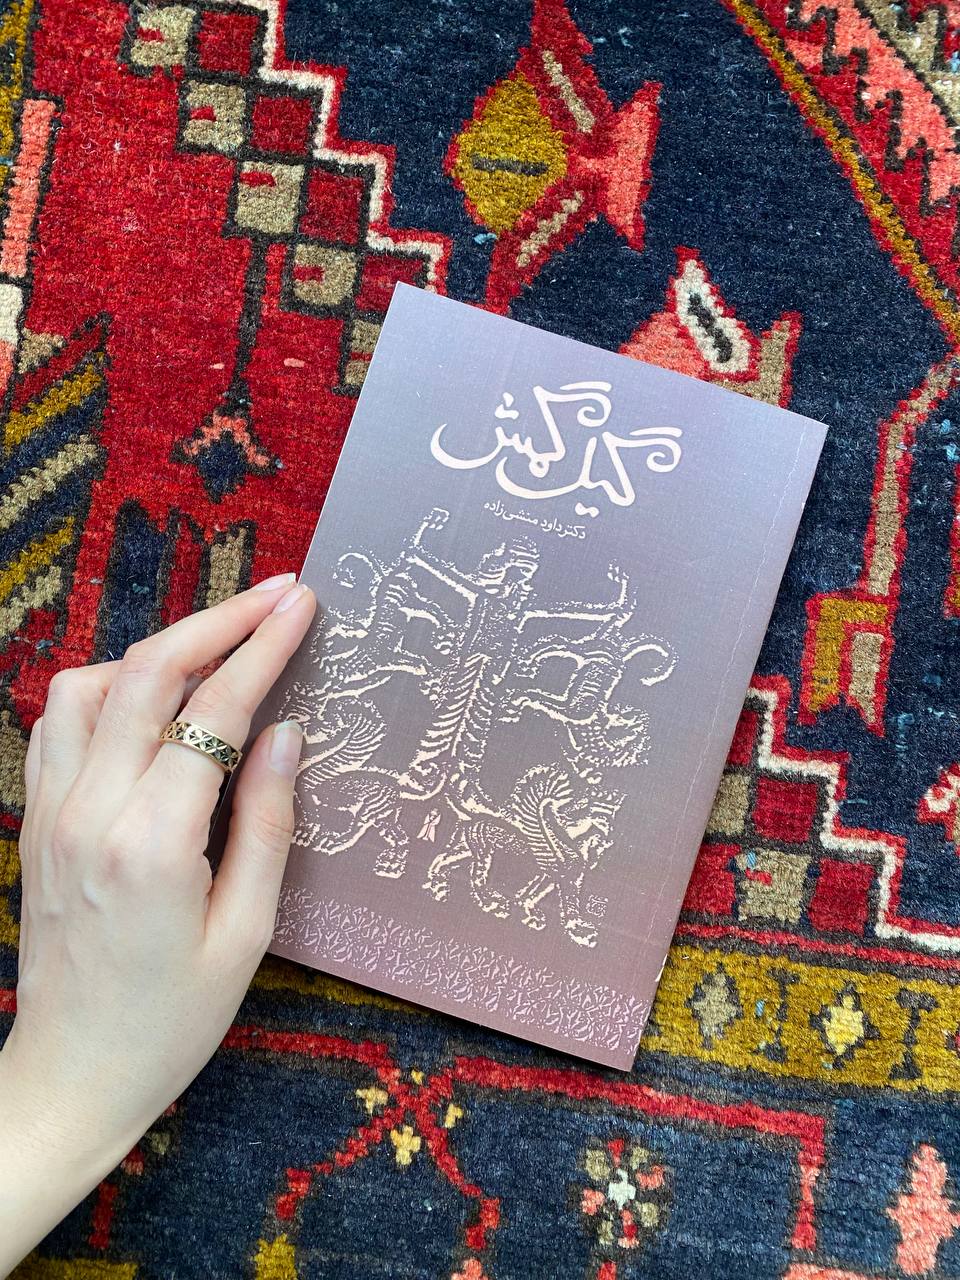 گیل گمش
دکتر داود منشی‌زاده